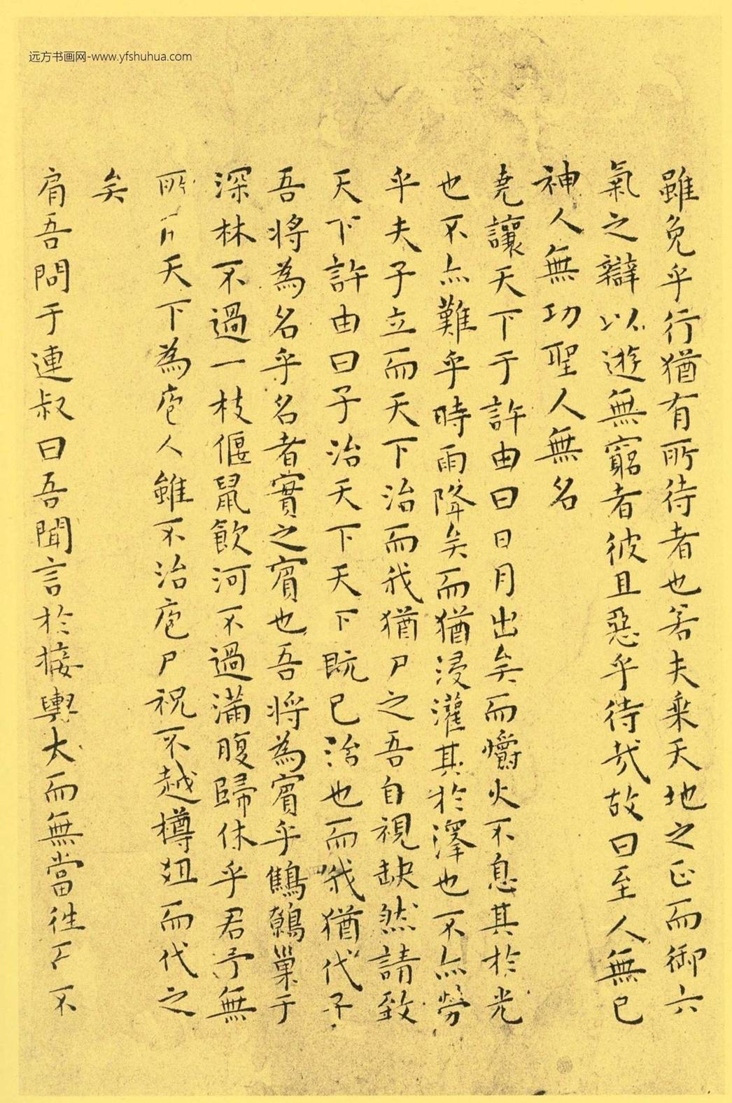 远方书画网-www.yfshuhua.com
雖免乎行猶有所待者也若夫乘天地之正而御六
氣之辯以遊無窮者彼且惡乎待哉故曰至人無已
神人無功聖人無名
堯讓天下于許由曰日月出矣而爝火不息其於光
也不亦難乎時雨降矣而猶浸灌其於澤也不亦勞
乎夫子立而天下治而我猶尸之吾自視缺然請致
天下許由曰子治天下天下既已治也而我猶代子
吾將為名乎名者實之賓也吾將為賓乎鷦鷯巢于
深林不過一枝偃鼠飲河不過滿腹歸休乎君予無
所用天下為庖人雖不治庖尸祝不越樽俎而代之
矣
肩吾問于連叔曰吾聞言於接輿大而無當往而不